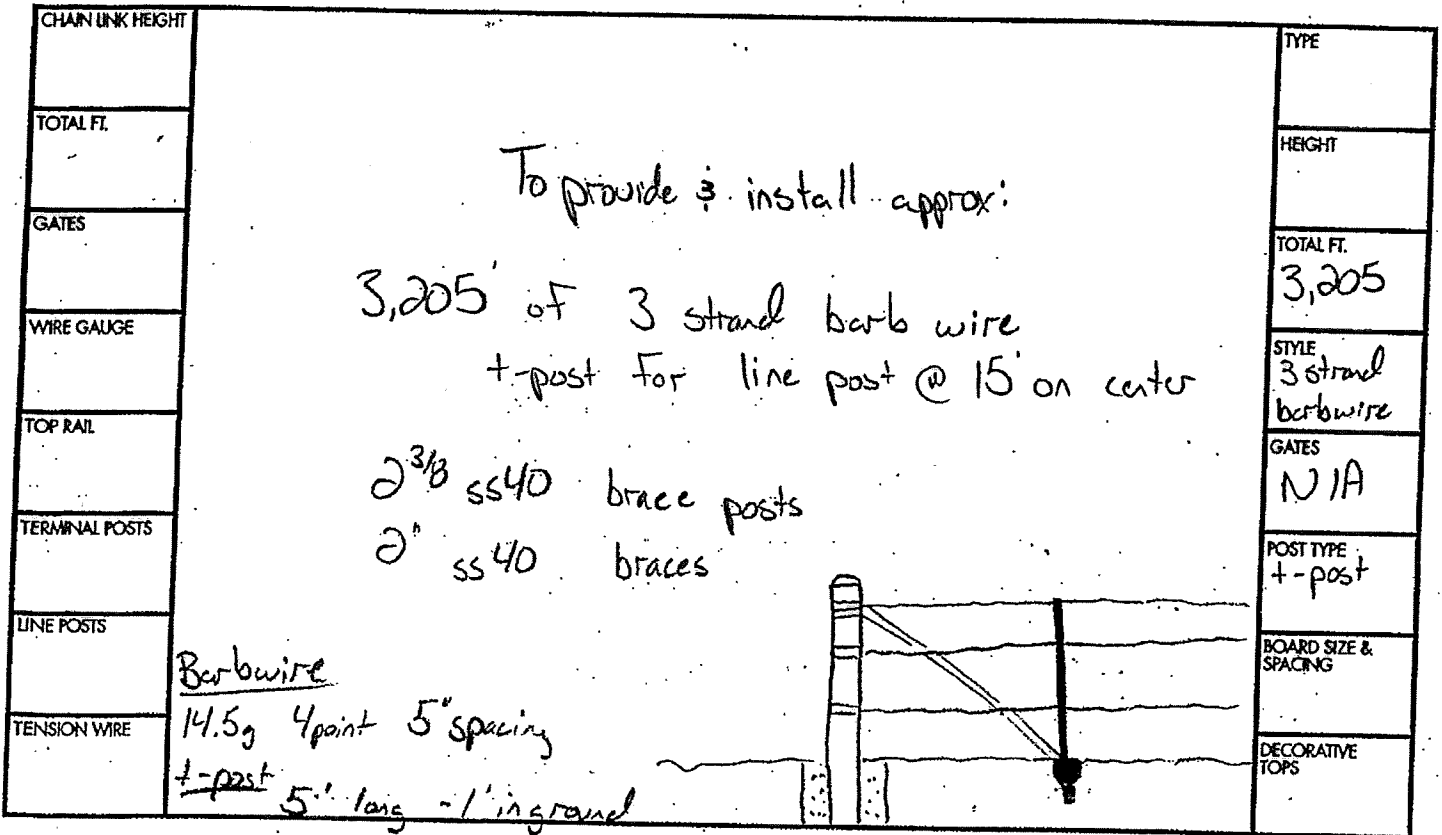 CHAIN LINK HEIGHT
TOTAL FT.
GATES
WIRE GAUGE
TOP RAIL
TERMINAL POSTS
LINE POSTS
TENSION WIRE
To provide & install approx:
3,205' of 3 strand barb wire
t-post for line post @ 15' on center
2 3/8 ss40 brace posts
2" ss40 braces
Barbwire
14.5g 4point 5" spacing
t-post
5' long - 1' in ground
TYPE
HEIGHT
TOTAL FT.
3,205
STYLE
3 strand
barbwire
GATES
N/A
POST TYPE
t-post
BOARD SIZE &
SPACING
DECORATIVE
TOPS